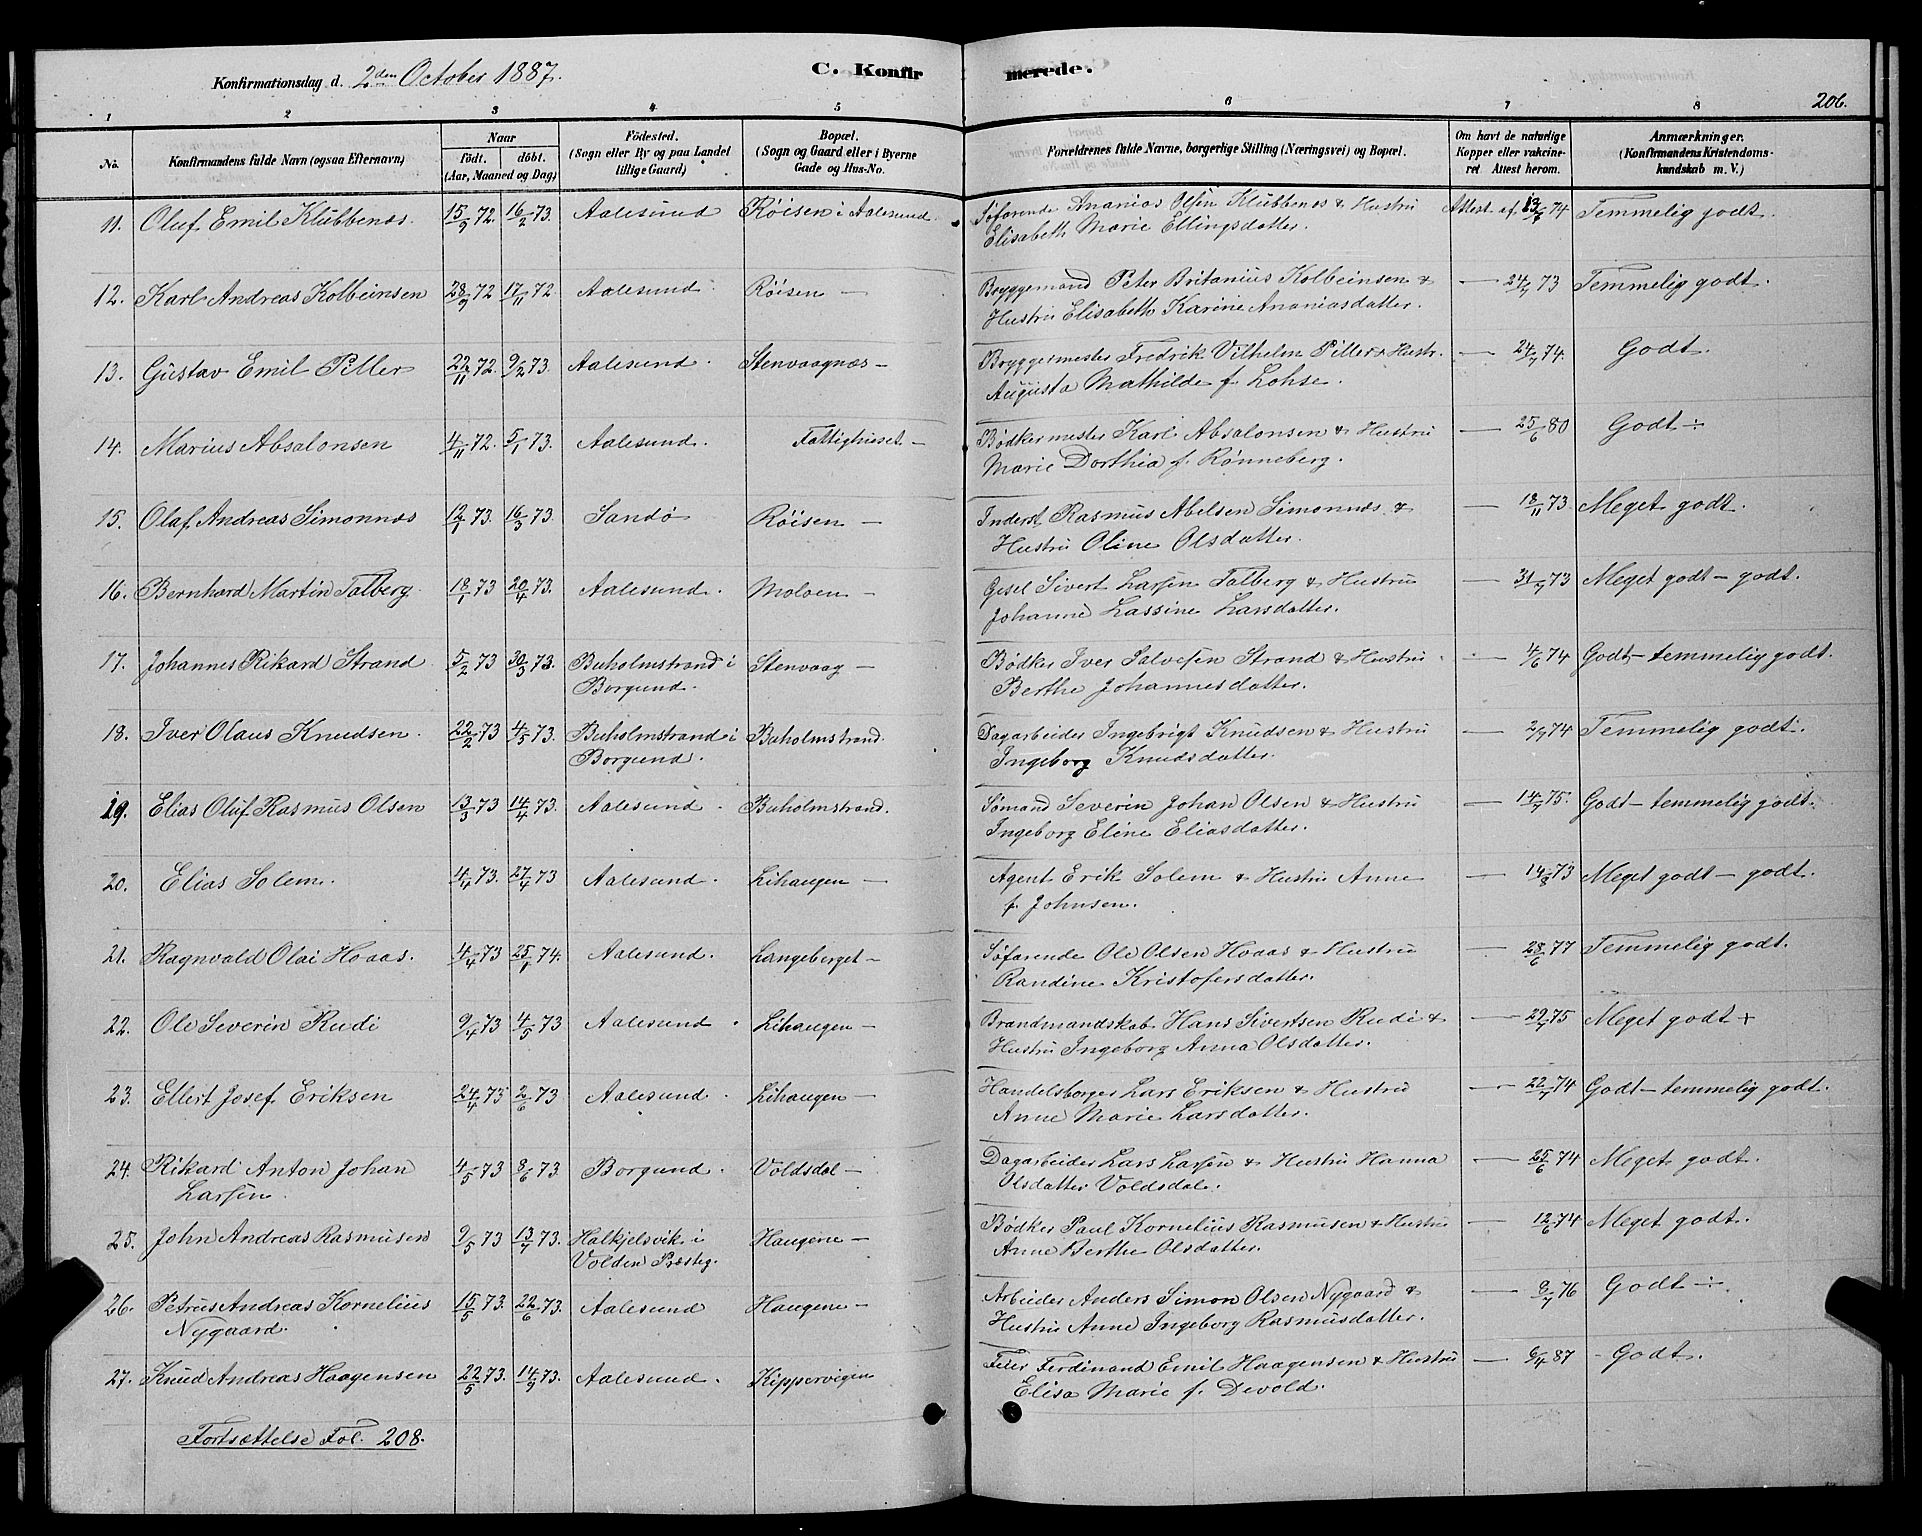 Konfirmationsdag d. 2den October 1887. C. Konfirmerede. 206.
1 2 3 4 5 6 7 8
No. Konfirmandens fulde Navn (ogsaa Efternavn) Naar födt. döbt. (Aar, Maaned og Dag) Födested. (Sogn eller By og paa Landet tillige Gaard) Bopæl. (Sogn og Gaard eller i Byerne Gade og Hus-No. Forældrenes fulde Navne, borgerlige Stilling (Næringsvei) og Bopæl. Om havt de naturlige Kopper eller vakcineret Attest herom. Anmærkninger. (Konfirmandens Kristendomskundskab m. V.)
11. Oluf Emil Klubbenæs. 15/9 72. 16/2 73. Aalesund Röisen i Aalesund. Söfarende Ananias Olsen Klubbenes & Hustru Attest af 13/6 74 Temmelig godt.
Elisabeth Marie Ellingsdatter.
12. Karl Andreas Kolbeinsen 28/9 72 17/11 72. Aalesund. Röisen — Bryggemand Peter Britanius Kolbeinsen & — 24/7 73 Temmelig godt.
Hustru Elisabeth Karine Ananiasdatter.
13. Gustav Emil Piller 22/11 72. 9/2 73. Aalesund. Stenvaagnæs — Bryggermester Fredrik Vilhelm Piller & Hustr. — 24/7 74. Godt.
Augusta Mathilde f. Lohse.
14. Marius Absalonsen 4/11 72. 5/1 73. Aalesund. Fattighuset — Bödkermester Karl Absalonsen & Hustru — 25/6 80 Godt ÷
Marie Dorthia f. Rönneberg.
15. Olaf Andreas Simonnæs 12/1 73. 16/3 73. Sandö Röisen — Inderst Rasmus Abelsen Simonnæs & — 18/11 73. Meget godt.
Hustru Oline Olsdatter.
16. Bernhard Martin Talberg. 18/1 73 20/4 73. Aalesund. Moloen — Gesel Sivert Larsen Talberg & Hustru — 31/7 73 Meget godt — godt.
Johanne Lassine Larsdatter.
17. Johannes Rikard Strand 5/2 73 30/3 73. Buholmstrand i Stenvaag — Bödker Iver Salvesen Strand & Hustru — 4/6 74 Godt — temmelig godt.
Borgund. Berthe Johannesdatter.
18. Iver Olaus Knudsen. 22/2 73 4/5 73. Buholmstrand i Buholmstrand. Dagarbeider Ingebrigt Knudsen & Hustru — 2/7 74 Temmelig godt.
Borgund. Ingeborg Knudsdatter.
19. Elias Oluf Rasmus Olsen 13/3 73 14/4 73. Aalesund. Buholmstrand. Sömand Severin Johan Olsen & Hustru — 14/7 75. Godt — temmelig godt.
Ingeborg Eline Eliasdatter.
20. Elias Solem. 4/4 73. 27/4 73 Aalesund. Lihaugen — Agent Erik Solem & Hustru Anne — 14/8 73 Meget godt — godt.
f. Johnsen.
21. Ragnvald Olai Hoaas. 4/4 73 25/1 74. Aalesund. Langeberget — Söfarende Ole Olsen Hoaas & Hustru — 28/6 77 Temmelig godt.
Randine Kristofersdatter.
22. Ole Severin Rudi 9/4 73 4/5 73 Aalesund. Lihaugen — Brandmandskab Hans Sivertsen Rudi & — 29/7 75 Meget godt +
Hustru Ingeborg Anna Olsdatter.
23. Ellert Josef Eriksen 24/4 73 2/6 73 Aalesund. Lihaugen — Handelsborger Lars Eriksen & Hustru — 22/7 74 Godt — temmelig godt.
Anne Marie Larsdatter.
24. Rikard Anton Johan 4/5 73 8/6 73 Borgund. Voldsdal — Dagarbeider Lars Larsen & Hustru Hanna — 25/6 74 Meget godt.
Larsen. Olsdatter Voldsdal.
25. John Andreas Rasmusen 9/5 73 13/7 73. Halkjelsvik i Haugene — Bödker Paul Kornelius Rasmusen & Hustru — 12/6 74 Meget godt.
Volden Præsteg. Anne Berthe Olsdatter.
26. Petrus Andreas Kornelius 15/5 73. 22/6 73. Aalesund Haugene — Arbeider Anders Simon Olsen Nygaard & — 8/7 76 Godt ÷
Nygaard. Hustru Anne Ingeborg Rasmusdatter.
27. Knud Andreas Haagensen 22/5 73. 14/9 73. Aalesund. Kippervigen Feier Ferdinand Emil Haagensen & Hustru — 6/4 87 Godt.
Elisa Marie f. Devold.
Fortsættelse Fol. 208.